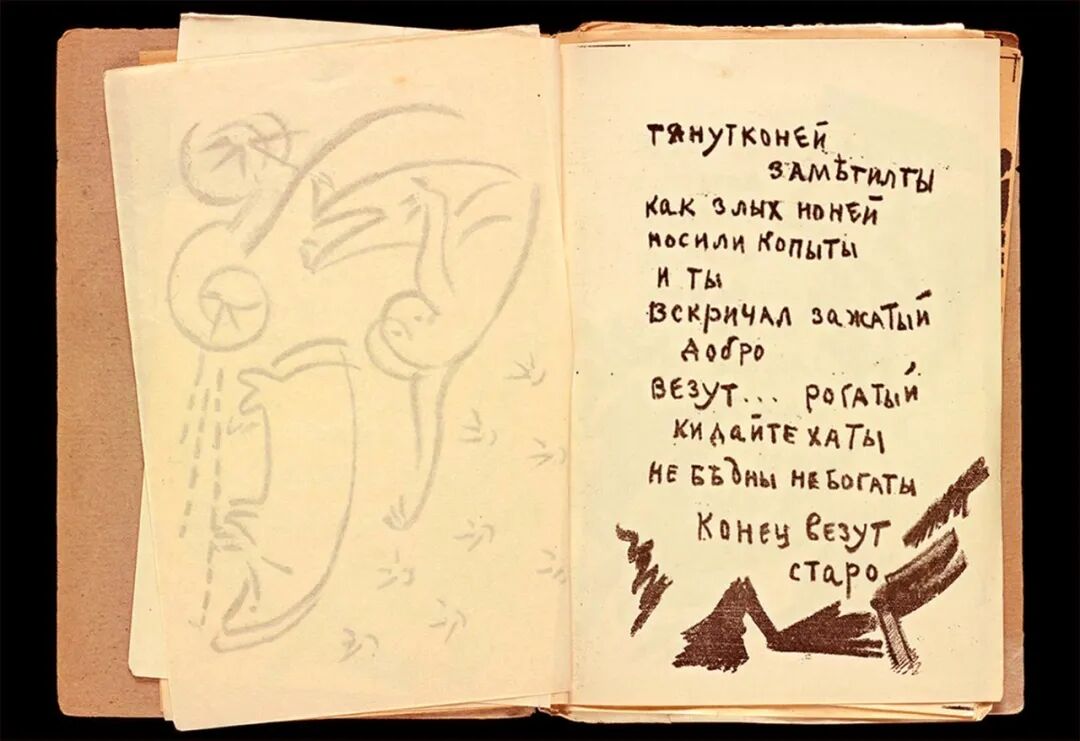 тянут коней
замѣтил ты
как злых ноней
носили копыты
и ты
вскричал зажатый
добро
везут... рогатый
кидайте хаты
не бѣдны не богаты
конец везут
старо